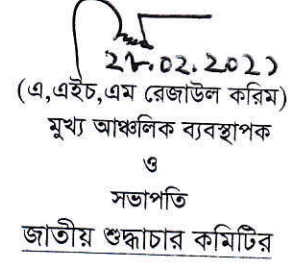 ২৮.০২.২০২১
(এ,এইচ,এম রেজাউল করিম)
মুখ্য আঞ্চলিক ব্যবস্থাপক
ও
সভাপতি
জাতীয় শুদ্ধাচার কমিটির